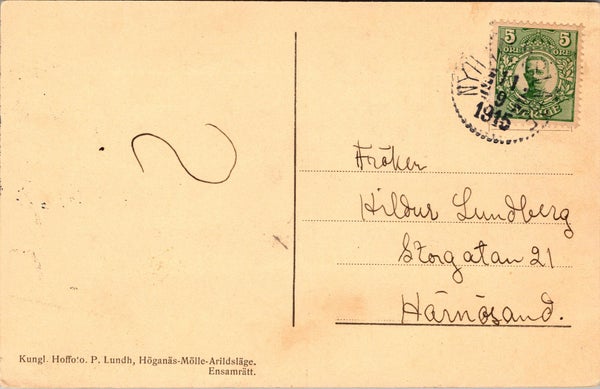 5 5
ÖRE ÖRE
SVERIGE
11
9
1915
Fröken
Hildur Lundberg
Storgatan 21
Härnösand.
Kungl. Hoffoto. P. Lundh, Höganäs-Mölle-Arildsläge.
Ensamrätt.